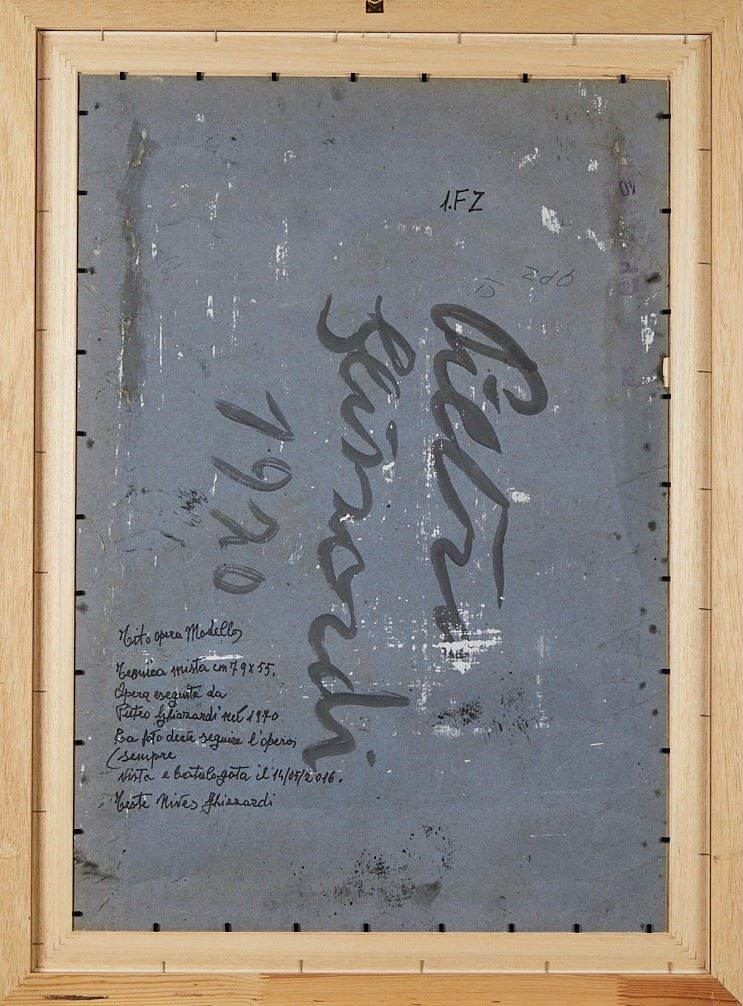 1.FZ
Pietro
Ghizzardi
1970
Tito opera Modella
Tecnica mista cm 79x55.
Opera eseguita da
Pietro Ghizzardi nel 1970
La foto deve seguire l'opera
(sempre
Vista e Catalogata il 14/05/2016.
Teste Nives Ghizzardi